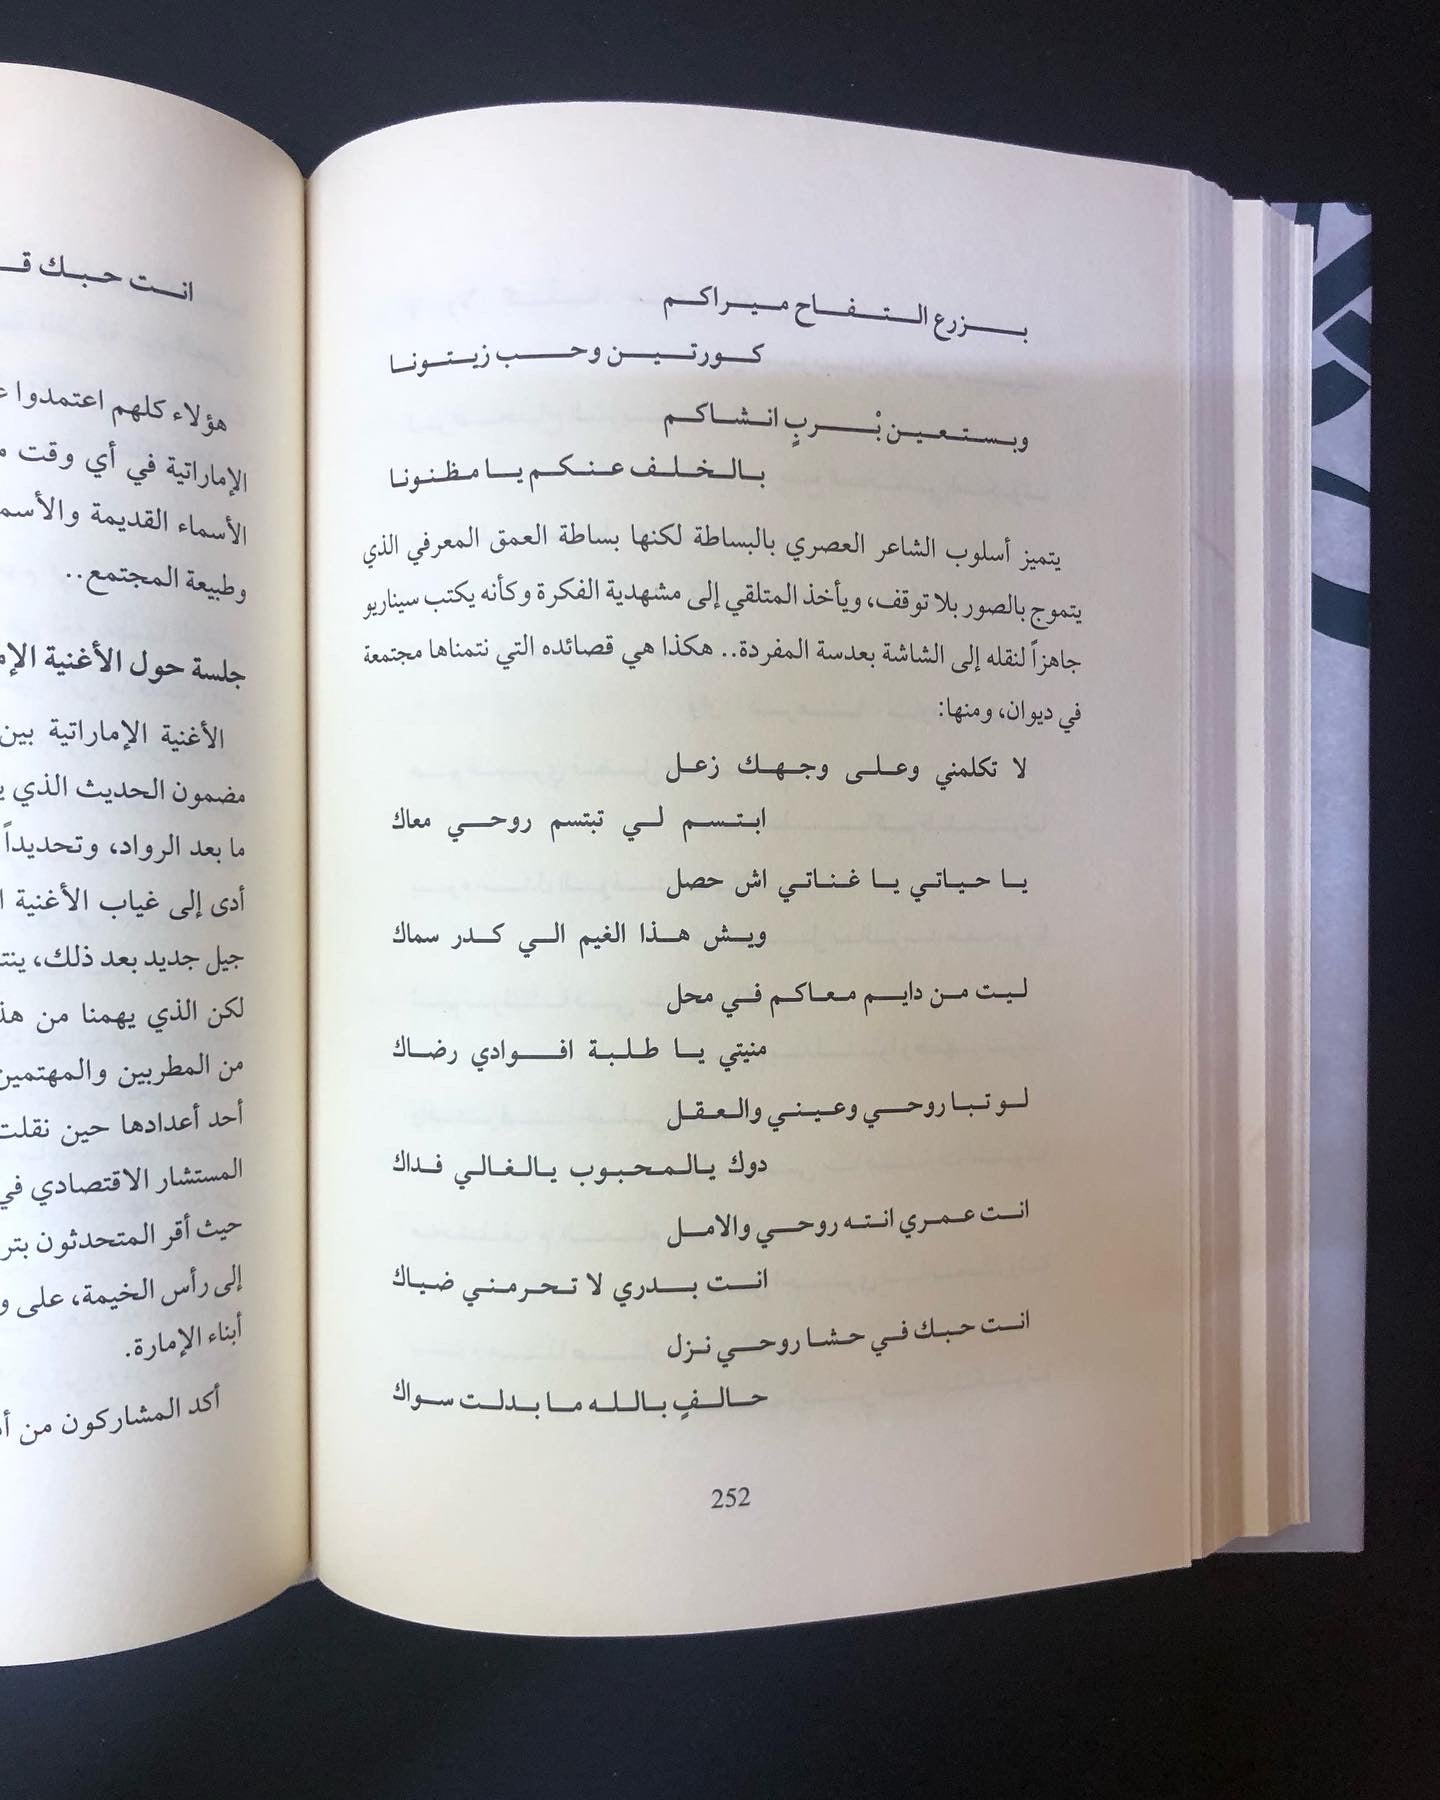 بزرع التفاح ميراكم
كورتين وحب زيتونا
وبستعين بْربٍ انشاكم
بالخلف عنكم يا مظنونا
يتميز أسلوب الشاعر العصري بالبساطة لكنها بساطة العمق المعرفي الذي
يتموج بالصور بلا توقف، ويأخذ المتلقي إلى مشهدية الفكرة وكأنه يكتب سيناريو
جاهزاً لنقله إلى الشاشة بعدسة المفردة.. هكذا هي قصائده التي نتمناها مجتمعة
في ديوان، ومنها:
لا تكلمني وعلى وجهك زعل
ابتسم لي تبتسم روحي معاك
يا حياتي يا غناتي اش حصل
ويش هذا الغيم الي كدر سماك
ليت من دايم معاكم في محل
منيتي يا طلبة افوادي رضاك
لو تبا روحي وعيني والعقل
دوك يالمحبوب يالغالي فداك
انت عمري انته روحي والامل
انت بدري لا تحرمني ضياك
انت حبك في حشا روحي نزل
حالفٍ بالله ما بدلت سواك
252
انت حبك
هؤلاء كلهم اعتمدوا
الإماراتية في أي وقت
الأسماء القديمة والأسم
وطبيعة المجتمع..
جلسة حول الأغنية الإم
الأغنية الإماراتية بين
مضمون الحديث الذي
ما بعد الرواد، وتحديداً
أدى إلى غياب الأغنية
جيل جديد بعد ذلك، ينت
لكن الذي يهمنا من هذ
من المطربين والمهتمين
أحد أعدادها حين نقلت
المستشار الاقتصادي في
حيث أقر المتحدثون بتر
إلى رأس الخيمة، على
أبناء الإمارة.
أكد المشاركون من